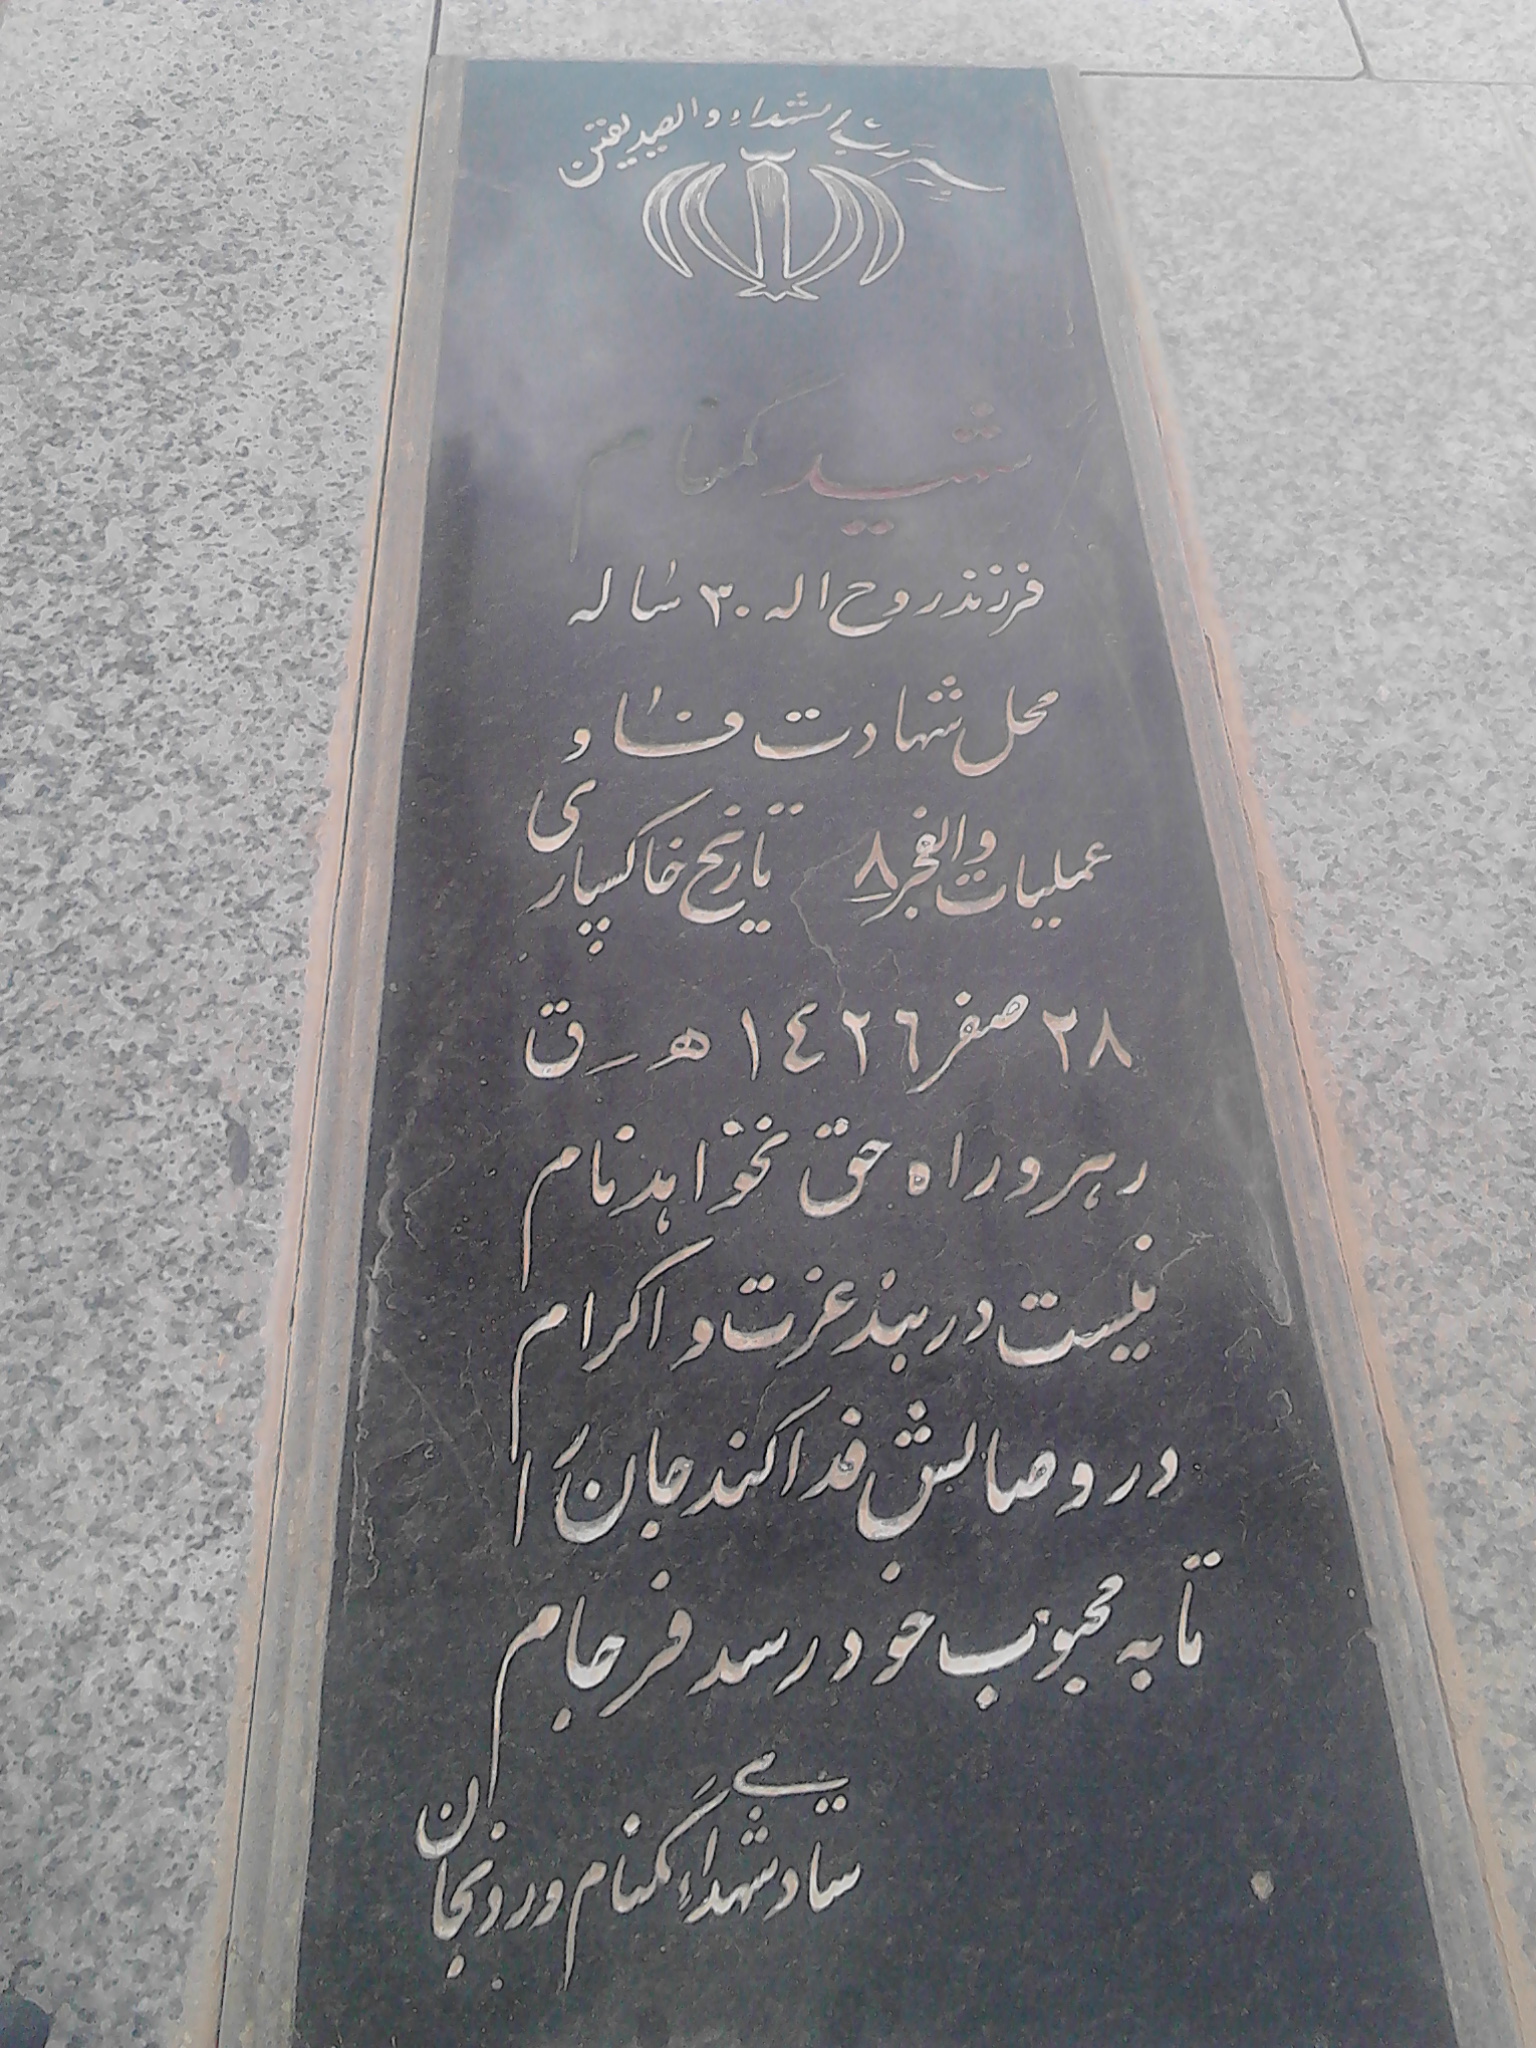 بسم رب الشهداء والصدیقین
شهید گمنام
فرزند روح اله ۳۰ ساله
محل شهادت فاو
عملیات والفجر ۸ تاریخ خاکسپاری
۲۸ صفر ۱٤۲٦ ه ق
رهرو راه حق نخواهد نام
نیست در بند عزت و اکرام
در وصالش فدا کند جان را
تا به محبوب خود رسد فرجام
ستاد شهداء گمنام وردنجان